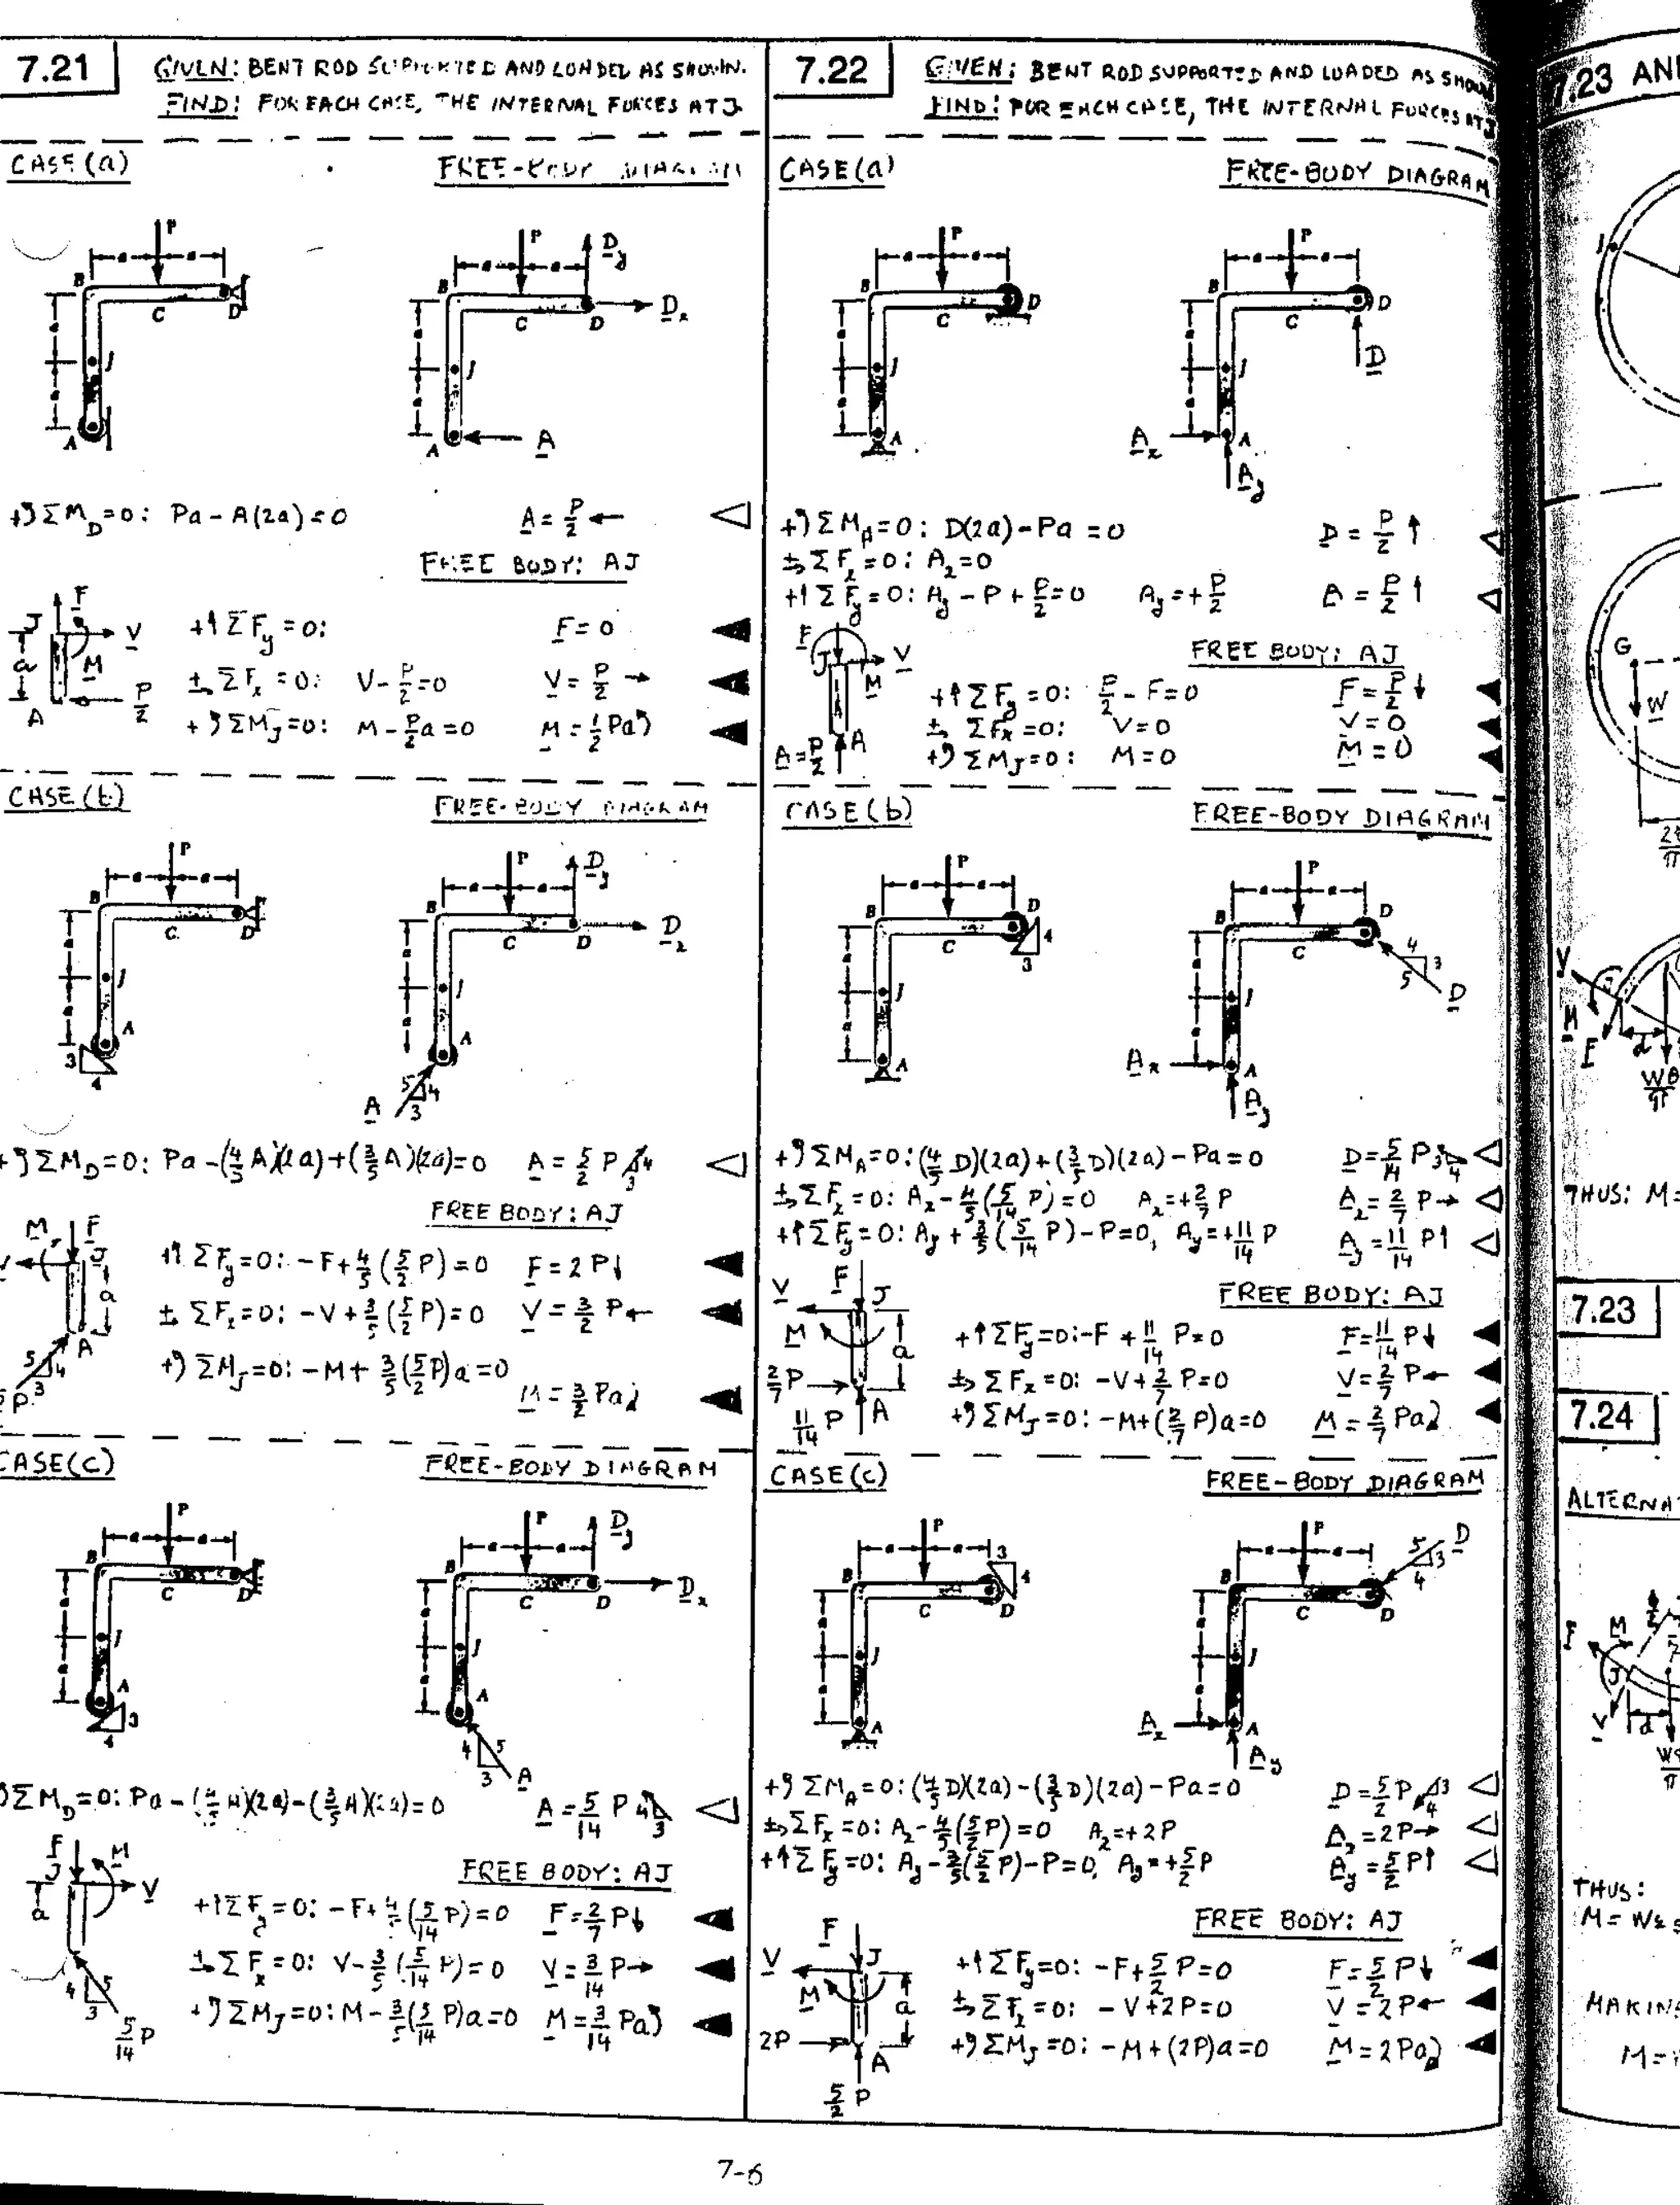 7.21
GIVEN: BENT ROD SUPPORTED AND LOADED AS SHOWN.
FIND: FOR EACH CASE, THE INTERNAL FORCES AT J.
CASE (a)
FREE-BODY DIAGRAM
P
a a
B C D
a J
a A
P D_y
a a
B C D D_x
a J
a A A
+↺ΣM_D=0: Pa - A(2a)=0 A = P/2 ←
FREE BODY: AJ
F J V M a A P/2
+↑ΣF_y=0: F=0
±→ ΣF_x=0: V - P/2 = 0 V = P/2 →
+↺ΣM_J=0: M - P/2 a = 0 M = 1/2 Pa↺
CASE (b)
FREE-BODY DIAGRAM
P
a a
B C D
a J
a A
3 4
P D_y
a a
B C D D_x
a J
a A
A 5 4 3
+↺ΣM_D=0: Pa-(4/5 A)(2a)+(3/5 A)(2a)=0 A = 5/2 P 4 3
FREE BODY: AJ
M F J V a A 5 4 3
+↑ΣF_y=0: -F+4/5(5/2 P)=0 F=2P↓
±→ ΣF_x=0: -V+3/5(5/2 P)=0 V=3/2 P←
+↺ΣM_J=0: -M+3/5(5/2 P)a=0
M=3/2 Pa↻
CASE(c)
FREE-BODY DIAGRAM
P
a a
B C D
a J
a A
3 4
P D_y
a a
B C D D_x
a J
a A
4 5 3 A
ΣM_D=0: Pa-(4/5 A)(2a)-(3/5 A)(2a)=0 A=5/14 P 4 3
FREE BODY: AJ
F J M V a 4 5 3 5/14 P
+↑ΣF_y=0: -F+4/5(5/14 P)=0 F=2/7 P↓
±→ ΣF_x=0: V-3/5(5/14 P)=0 V=3/14 P→
+↺ΣM_J=0: M-3/5(5/14 P)a=0 M=3/14 Pa↺
7.22
GIVEN: BENT ROD SUPPORTED AND LOADED AS SHOWN
FIND: FOR EACH CASE, THE INTERNAL FORCES AT J
CASE (a)
FREE-BODY DIAGRAM
P
a a
B C D
a J
a A
P
a a
B C D
a J D
a A_x A
A_y
+↺ΣM_A=0: D(2a)-Pa=0 D=P/2 ↑
±→ ΣF_x=0: A_x=0
+↑ΣF_y=0: A_y-P+P/2=0 A_y=+P/2 A=P/2 ↑
FREE BODY: AJ
F J V M A=P/2 A
+↑ΣF_y=0: P/2-F=0 F=P/2 ↓
±→ ΣF_x=0: V=0 V=0
+↺ΣM_J=0: M=0 M=0
CASE (b)
FREE-BODY DIAGRAM
P
a a
B C D
4 3
a J
a A
P
a a
B C D
4 3 5 D
a J
a A_x A
A_y
+↺ΣM_A=0: (4/5 D)(2a)+(3/5 D)(2a)-Pa=0 D=5/14 P 3 4
±→ ΣF_x=0: A_x-4/5(5/14 P)=0 A_x=+2/7 P A_x=2/7 P→
+↑ΣF_y=0: A_y+3/5(5/14 P)-P=0, A_y=+11/14 P A_y=11/14 P↑
FREE BODY: AJ
V F J M a 2/7 P 11/14 P A
+↑ΣF_y=0: -F+11/14 P=0 F=11/14 P↓
±→ ΣF_x=0: -V+2/7 P=0 V=2/7 P←
+↺ΣM_J=0: -M+(2/7 P)a=0 M=2/7 Pa↻
CASE (c)
FREE-BODY DIAGRAM
P
a a 3
B C D 4
a J
a A
P
a a
B C D
5 3 4 D
a J
a A_x A
A_y
+↺ΣM_A=0: (4/5 D)(2a)-(3/5 D)(2a)-Pa=0 D=5/2 P 3 4
±→ ΣF_x=0: A_x-4/5(5/2 P)=0 A_x=+2P A_x=2P→
+↑ΣF_y=0: A_y-3/5(5/2 P)-P=0, A_y=+5/2 P A_y=5/2 P↑
FREE BODY: AJ
F V J M a 2P A 5/2 P
+↑ΣF_y=0: -F+5/2 P=0 F=5/2 P↓
±→ ΣF_x=0: -V+2P=0 V=2P←
+↺ΣM_J=0: -M+(2P)a=0 M=2Pa↻
7-6
7.23 AN
J
G
W
V
M
F
d
THUS: M=
7.23
7.24
ALTERNA
M
V
d
THUS:
MAKIN